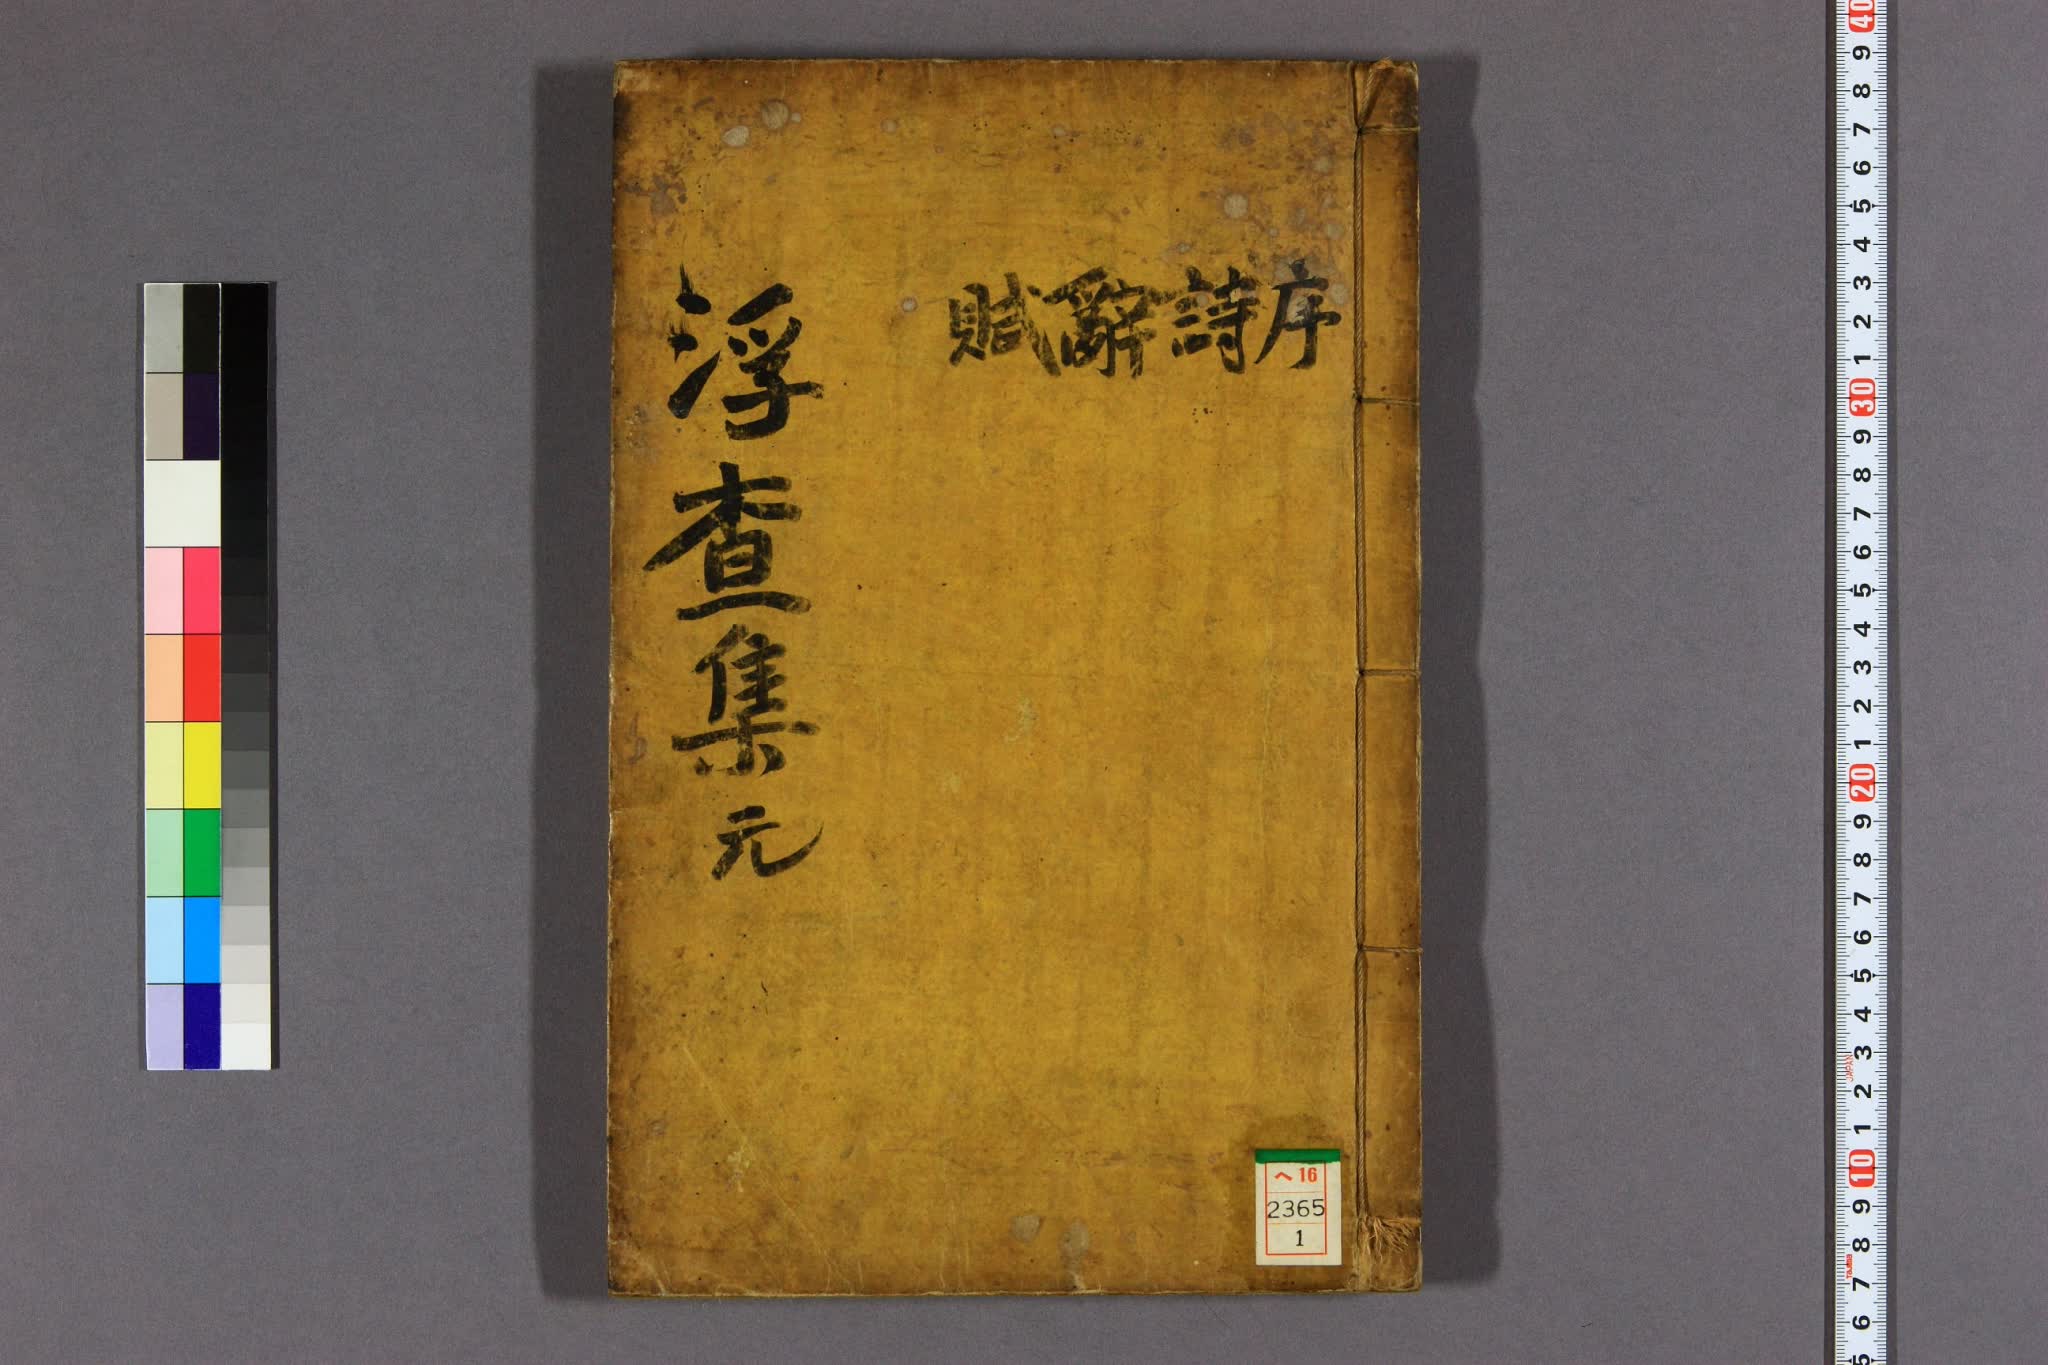 序詩辭賦
浮査集 元
ヘ16
2365
1
40
9
8
7
6
5
4
3
2
1
30
9
8
7
6
5
4
3
2
1
20
9
8
7
6
5
4
3
2
1
10
9
8
7
6
5
JAPAN